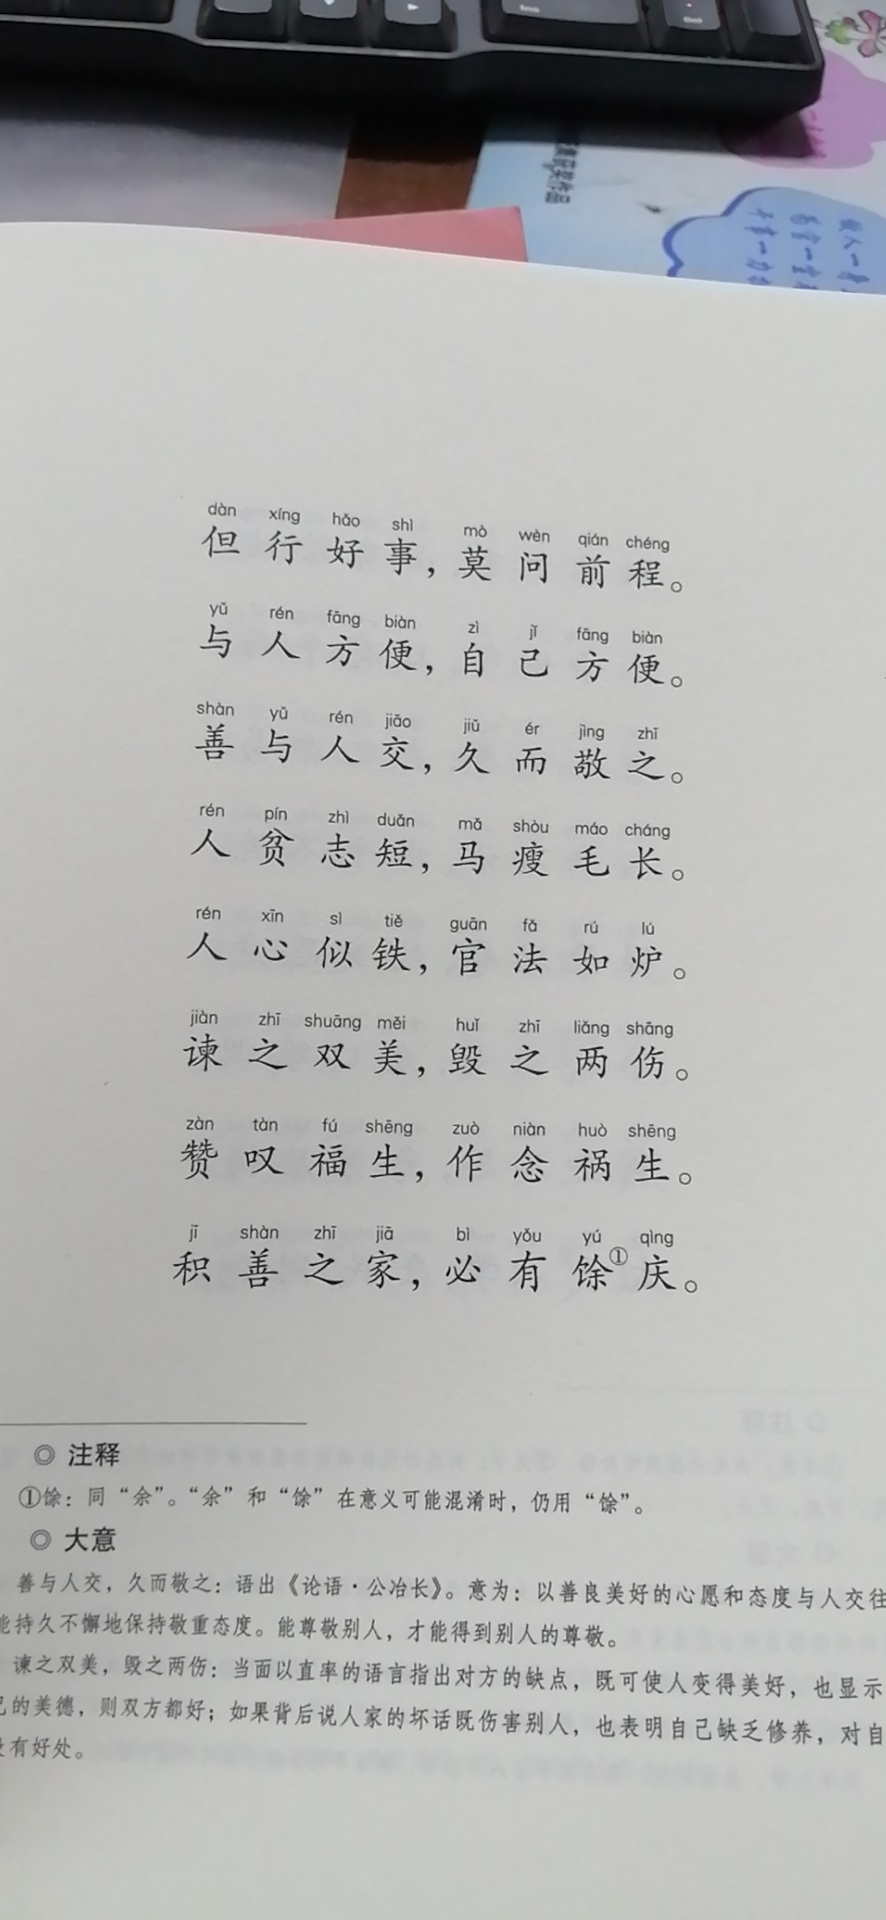 dàn xíng hǎo shì mò wèn qián chéng
但行好事，莫问前程。
yǔ rén fāng biàn zì jǐ fāng biàn
与人方便，自己方便。
shàn yǔ rén jiāo jiǔ ér jìng zhī
善与人交，久而敬之。
rén pín zhì duǎn mǎ shòu máo cháng
人贫志短，马瘦毛长。
rén xīn sì tiě guān fǎ rú lú
人心似铁，官法如炉。
jiàn zhī shuāng měi huǐ zhī liǎng shāng
谏之双美，毁之两伤。
zàn tàn fú shēng zuò niàn huò shēng
赞叹福生，作念祸生。
jī shàn zhī jiā bì yǒu yú qìng
积善之家，必有馀①庆。
◎ 注释
①馀：同“余”。“余”和“馀”在意义可能混淆时，仍用“馀”。
◎ 大意
善与人交，久而敬之：语出《论语·公冶长》。意为：以善良美好的心愿和态度与人交往
能持久不懈地保持敬重态度。能尊敬别人，才能得到别人的尊敬。
谏之双美，毁之两伤：当面以直率的语言指出对方的缺点，既可使人变得美好，也显示
己的美德，则双方都好；如果背后说人家的坏话既伤害别人，也表明自己缺乏修养，对自
没有好处。